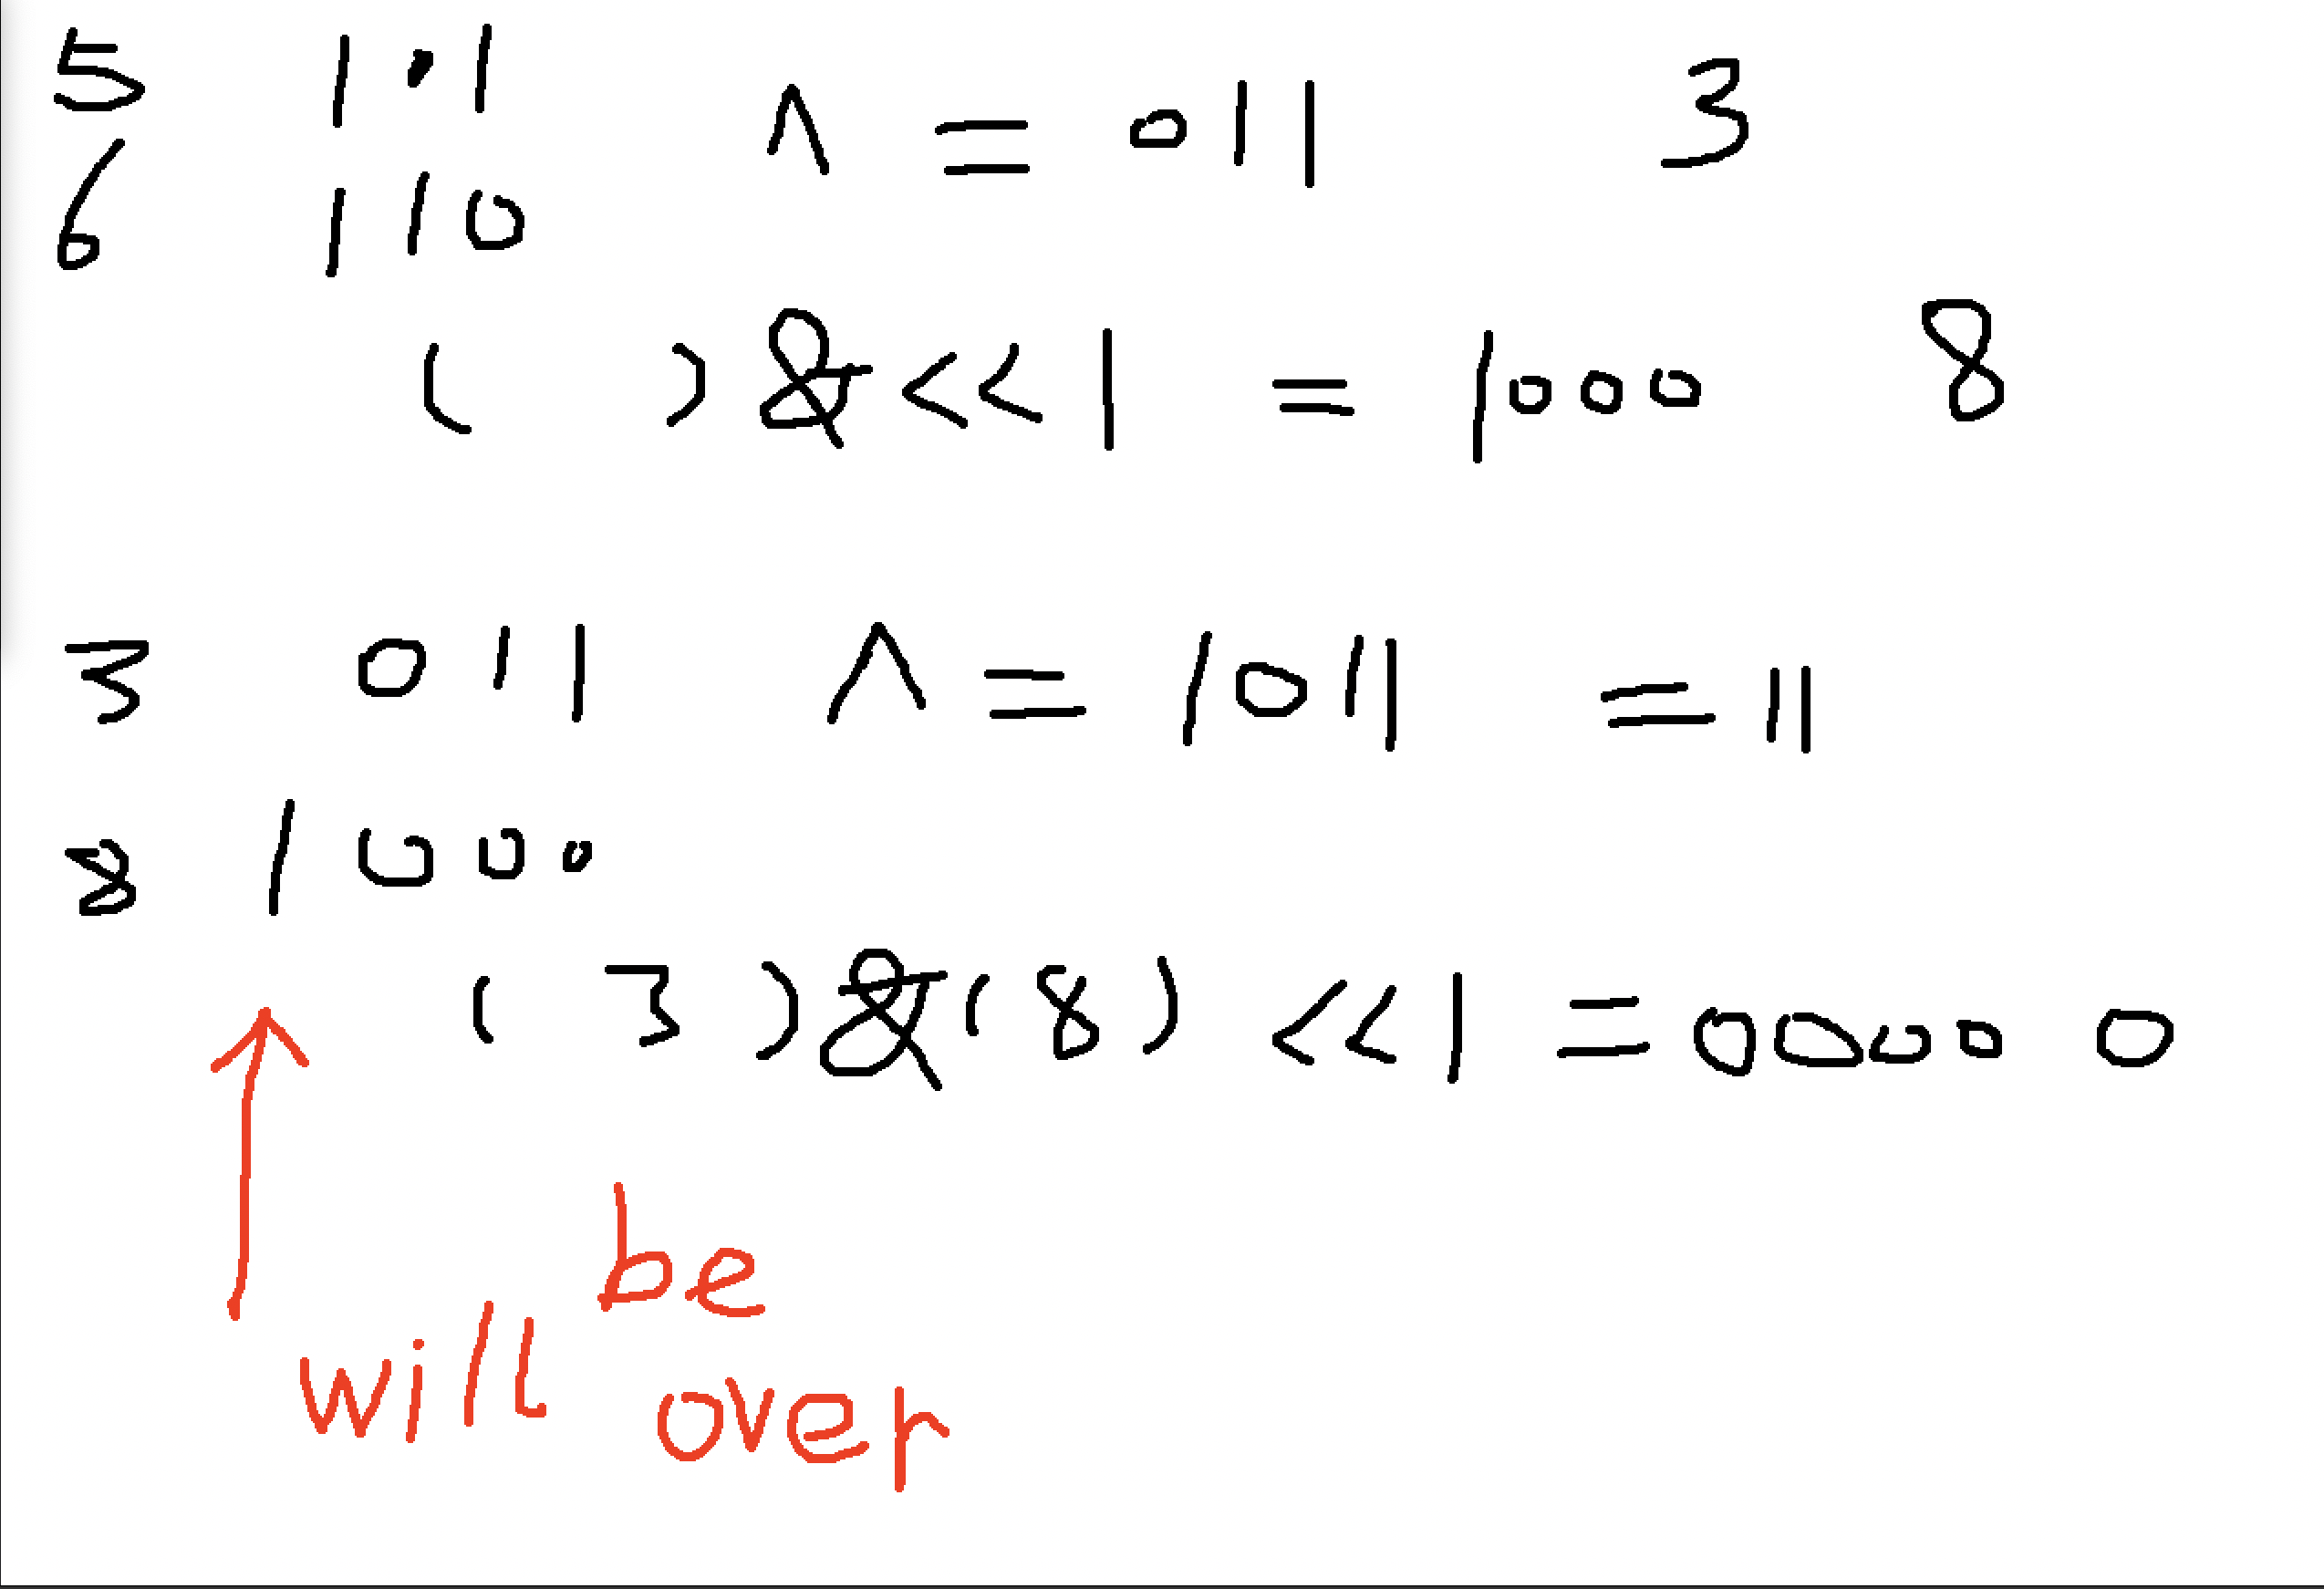 5 101 ^ = 011 3
6 110
( ) & << 1 = 1000 8
3 011 ^ = 1011 = 11
8 1000
(3) & (8) << 1 = 0000 0
will be over